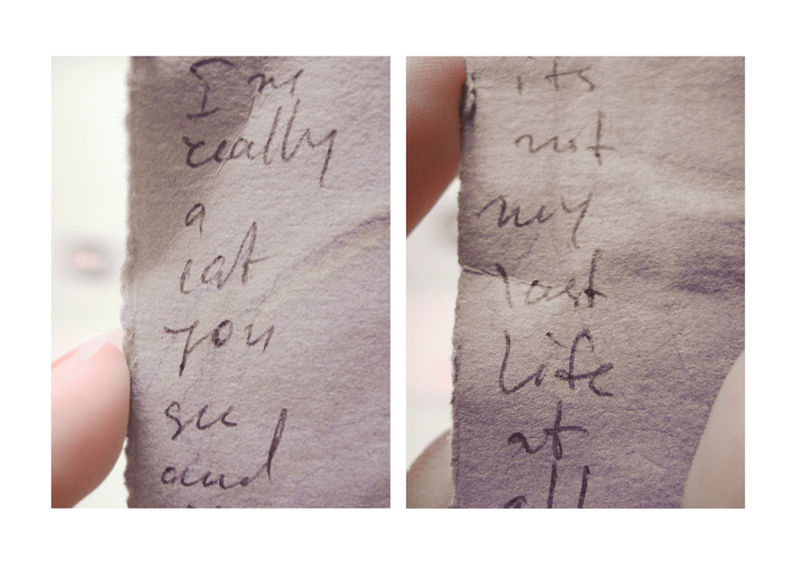 I'm
really
a
cat
you
see
and
its
not
my
last
life
at
all